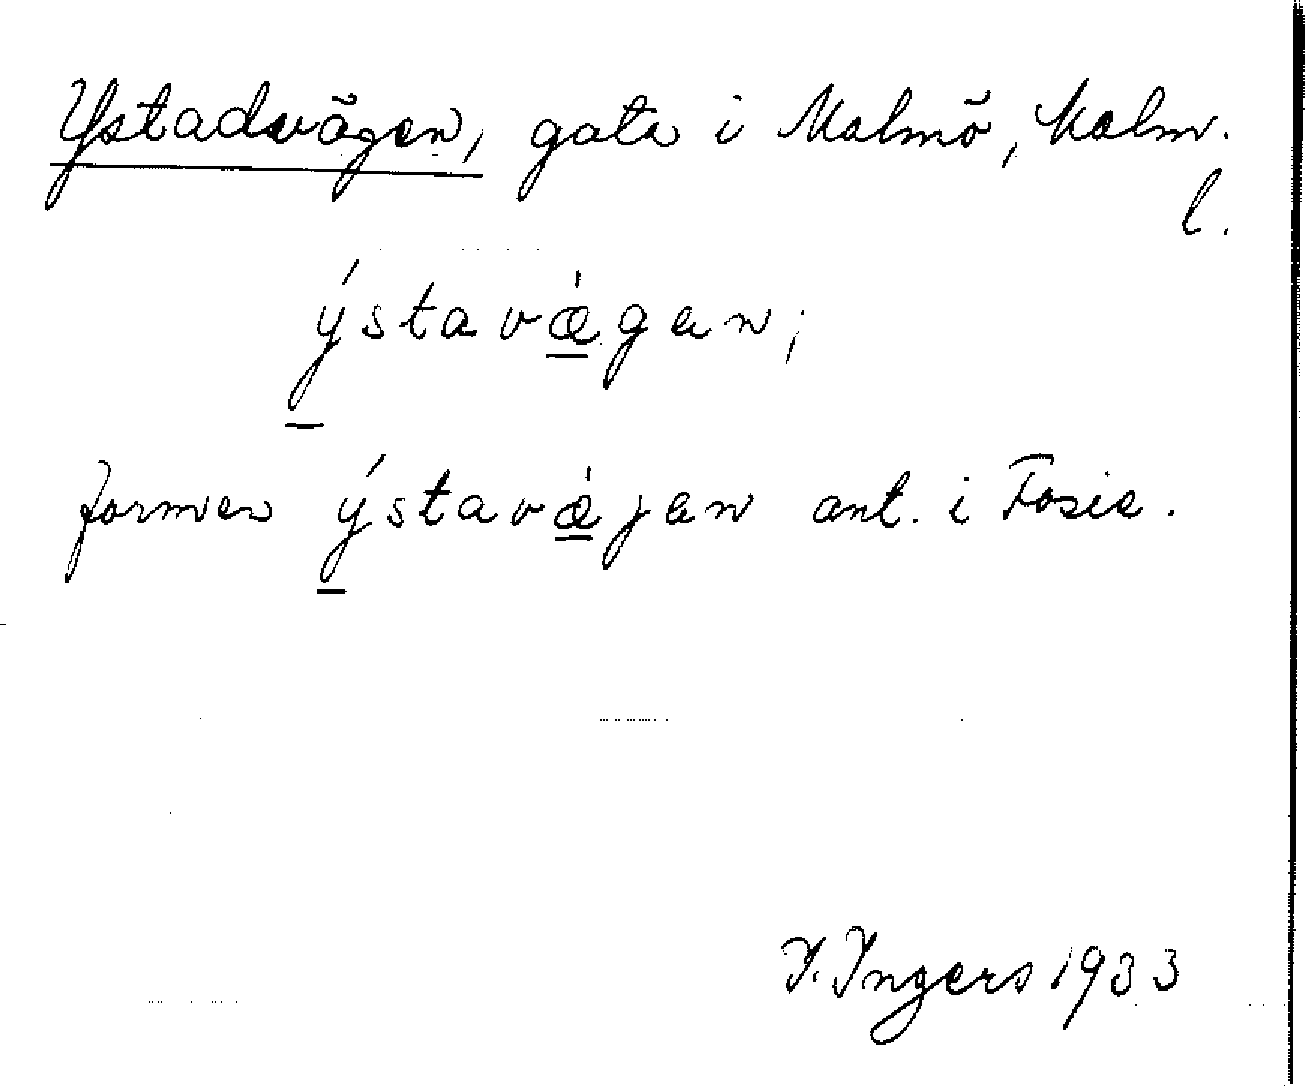 Ystadvägen, gata i Malmö, Malm.
l.
ýstavǽgan;
formen ýstavǽjan ant. i Fosie.
I. Ingers 1933